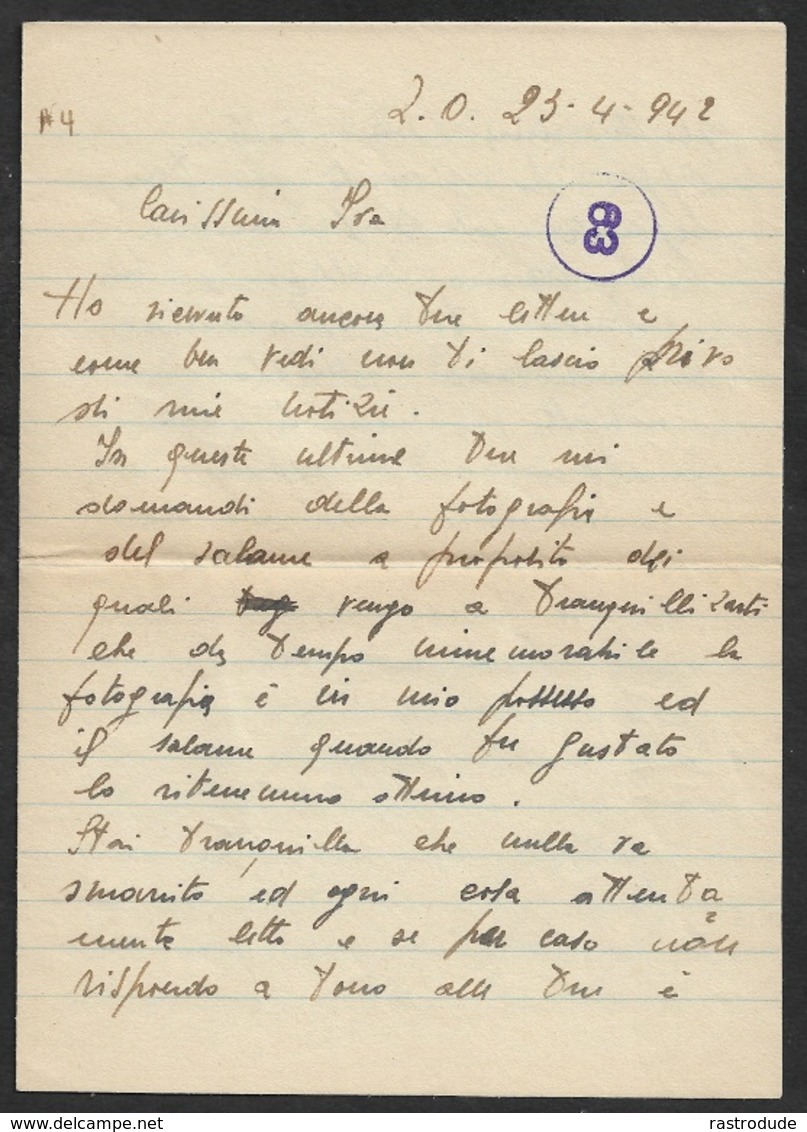 A4
Z.O. 23-4-942
63
Carissima Isa
Ho ricevuto ancora tue lettere e
come ben vedi non ti lascio privo
di mie notizie.
In queste ultime tue mi
domandi della fotografia e
del salame a proposito dei
quali vengo a tranquillizarti
che da tempo immemorabile la
fotografia è in mio possesso ed
il salame quando fu gustato
lo ritenemmo ottimo.
Stai tranquilla che nulla va
smarrito ed ogni cosa attenta
mente letto e se per caso non
rispondo a tono alle tue è
www.delcampe.net
rastrodude